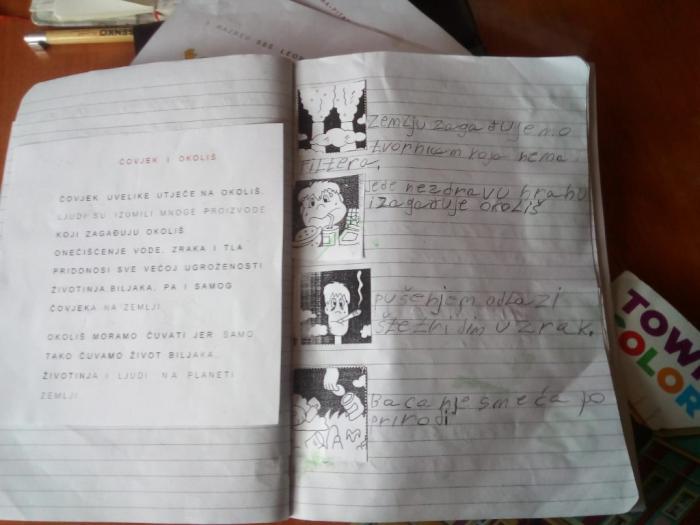 ČOVJEK I OKOLIŠ
ČOVJEK UVELIKE UTJEČE NA OKOLIŠ.
LJUDI SU IZUMILI MNOGE PROIZVODE
KOJI ZAGAĐUJU OKOLIŠ
ONEČIŠĆENJE VODE, ZRAKA I TLA
PRIDONOSI SVE VEĆOJ UGROŽENOSTI
ŽIVOTINJA BILJAKA, PA I SAMOG
ČOVJEKA NA ZEMLJI.
OKOLIŠ MORAMO ČUVATI JER SAMO
TAKO ČUVAMO ŽIVOT BILJAKA,
ŽIVOTINJA I LJUDI NA PLANETI
ZEMLJI.
zemlju zagađujemo
tvornicam koja nema
FILTERA.
jede nezdravu hranu
i zagađuje okoliš
pušenjem odlazi
štetni dim u zrak.
Bacanje smeća po
prirodi
TOWN
COLOR